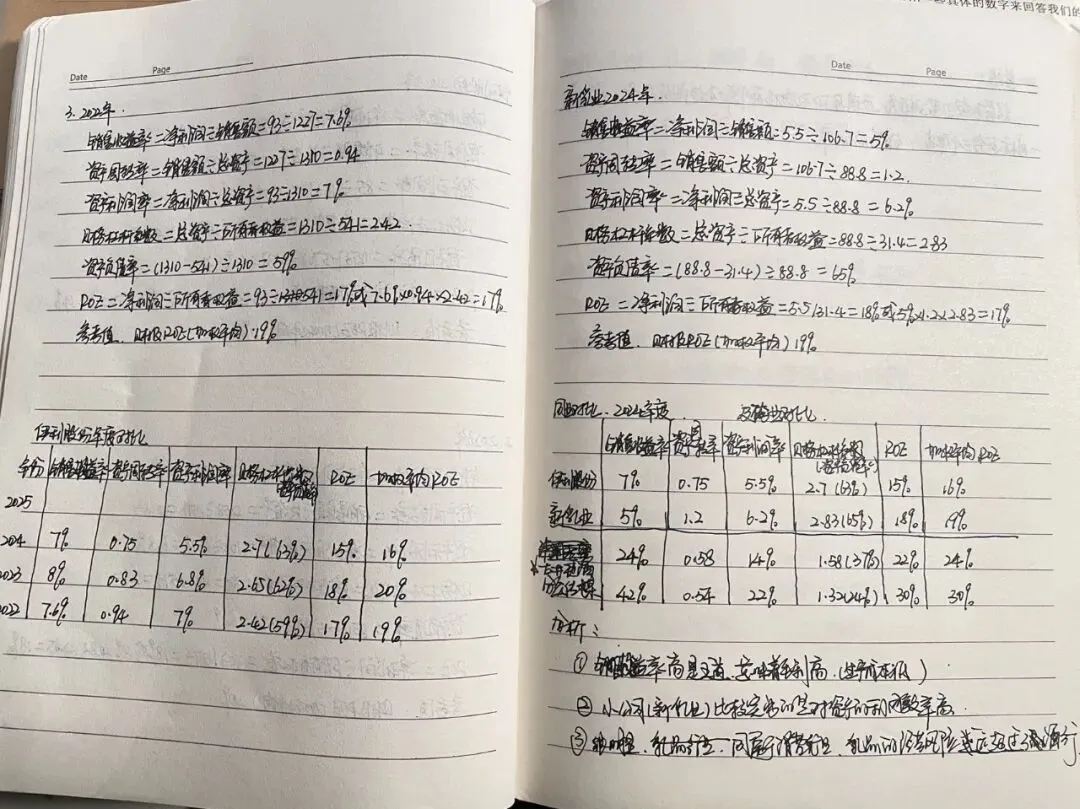 些具体的数字来回答我们的
Date Page
3. 2022年.
销售收益率=净利润÷销售额=93÷1227=7.6%
资产周转率=销售额÷总资产=1227÷1310=0.94
资产利润率=净利润÷总资产=93÷1310=7%
财务杠杆系数=总资产÷所有者权益=1310÷541=2.42
资产负债率=(1310-541)÷1310=59%
ROE=净利润÷所有者权益=93÷541=17%或7.6%×0.94×2.42=17%
参考值. 财报ROE(加权平均)19%
伊利股份年度对比
年份 销售收益率 资产周转率 资产利润率 财务杠杆系数 资产负债率 ROE 加权平均ROE
2025
2024 7% 0.75 5.5% 2.7(63%) 15% 16%
2023 8% 0.83 6.8% 2.65(62%) 18% 20%
2022 7.6% 0.94 7% 2.42(59%) 17% 19%
Date Page
新乳业2024年.
销售收益率=净利润÷销售额=5.5÷106.7=5%
资产周转率=销售额÷总资产=106.7÷88.8=1.2.
资产利润率=净利润÷总资产=5.5÷88.8=6.2%
财务杠杆系数=总资产÷所有者权益=88.8÷31.4=2.83
资产负债率=(88.8-31.4)÷88.8=65%
ROE=净利润÷所有者权益=5.5/31.4=18%或5%×1.2×2.83=17%
参考值. 财报ROE(加权平均)19%
同业对比. 2024年度. 与酒业对比.
销售收益率 资产周转率 资产利润率 财务杠杆系数(资产负债率) ROE 加权平均ROE
伊利股份 7% 0.75 5.5% 2.7(63%) 15% 16%
新乳业 5% 1.2 6.2% 2.83(65%) 18% 19%
24% 0.58 14% 1.58(37%) 22% 24%
42% 0.54 22% 1.32(24%) 30% 30%
分析:
① 销售收益率高是王道.意味着毛利高.(生产成本低)
② 小公司(新乳业)比较
③ 很明显.乳品行业.同属于消费行业.乳品的